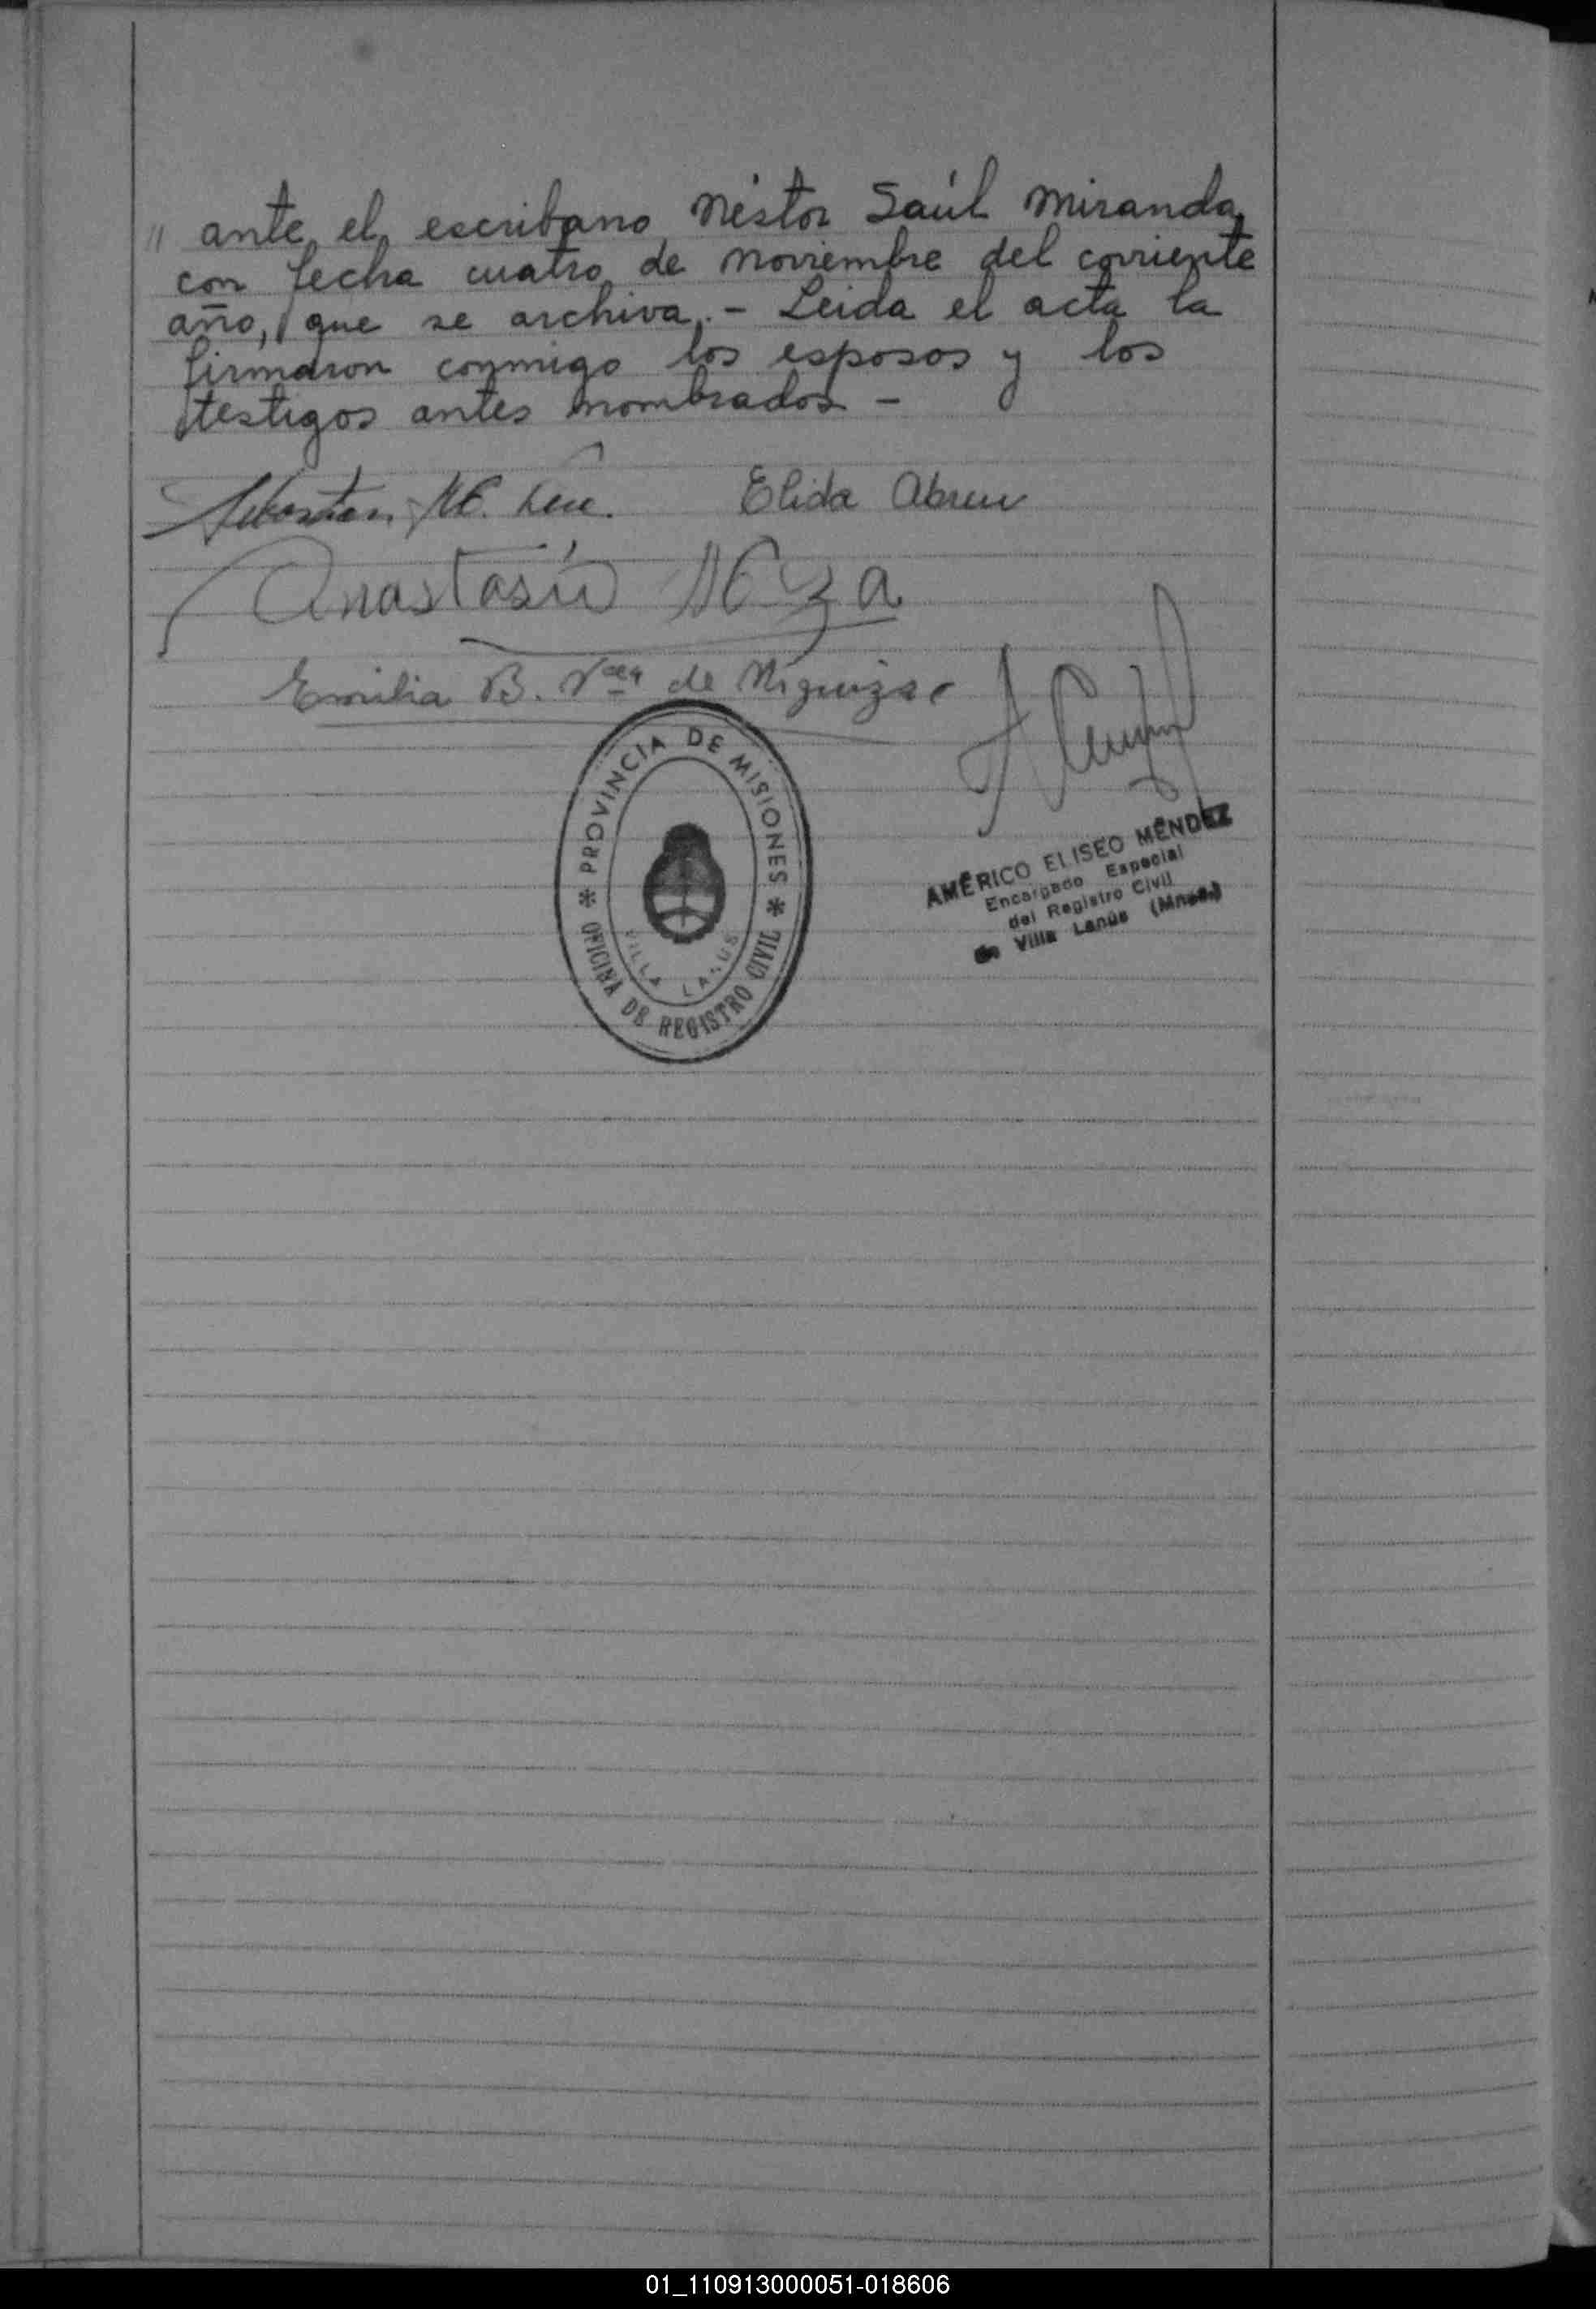 " ante el escribano Néstor Saúl Miranda,
con fecha cuatro de noviembre del corriente
año, que se archiva. - Leida el acta la
firmaron conmigo los esposos y los
testigos antes nombrados -
Sebastian
Elida Abreu
Anastasio Meza
Emilia B. de
PROVINCIA DE MISIONES
OFICINA DE REGISTRO CIVIL
VILLA LANUS
AMÉRICO ELISEO MÉNDEZ
Encargado Especial
del Registro Civil
de Villa Lanús (Mnes.)
01_110913000051-018606